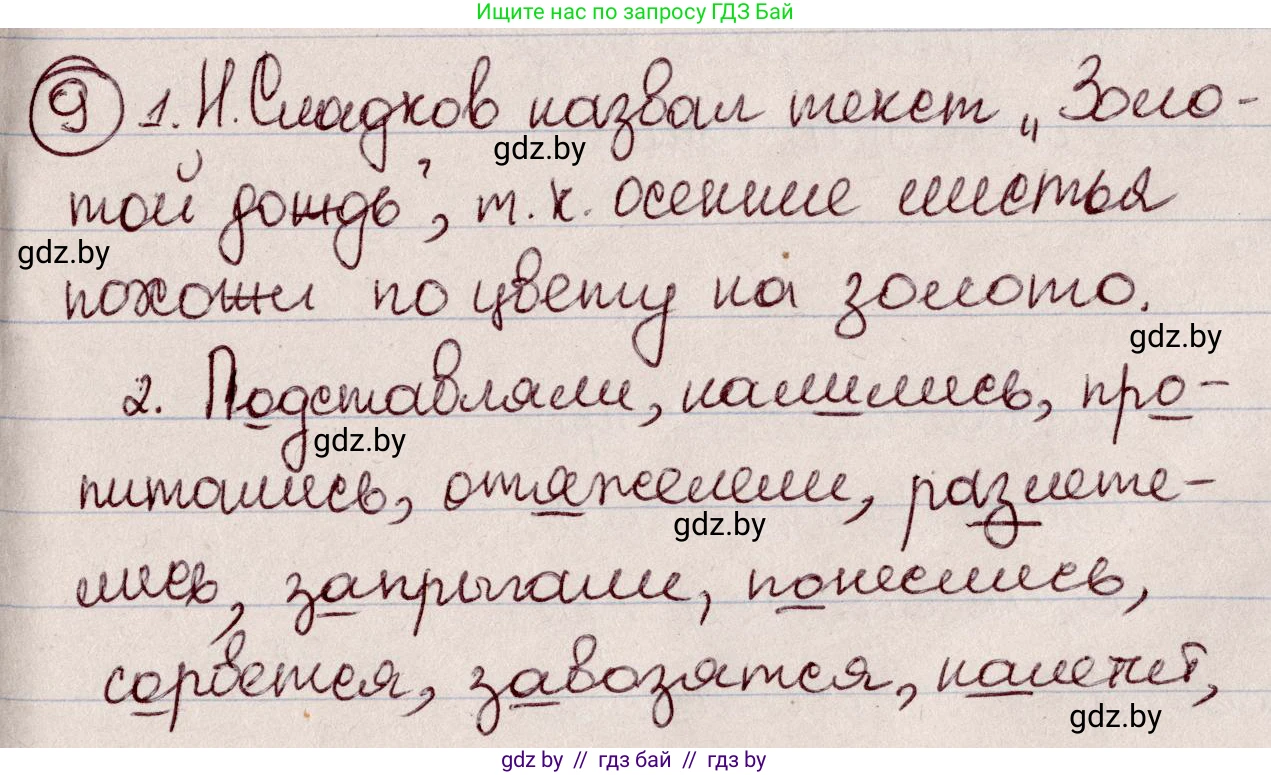 Ищите нас по запросу ГДЗ Бай
9 1. Н. Сладков назвал текст „Золо-
gdz.by
той дождь", т. к. осенние листья
gdz.by
похожи по цвету на золото.
gdz.by
2. Подставляли, налились, про-
gdz.by
питались, отяжелели, разлете-
gdz.by
лись, запрыгали, понеслись,
сорвется, завозятся, налетит,
gdz.by
gdz by // гдз бай // gdz by